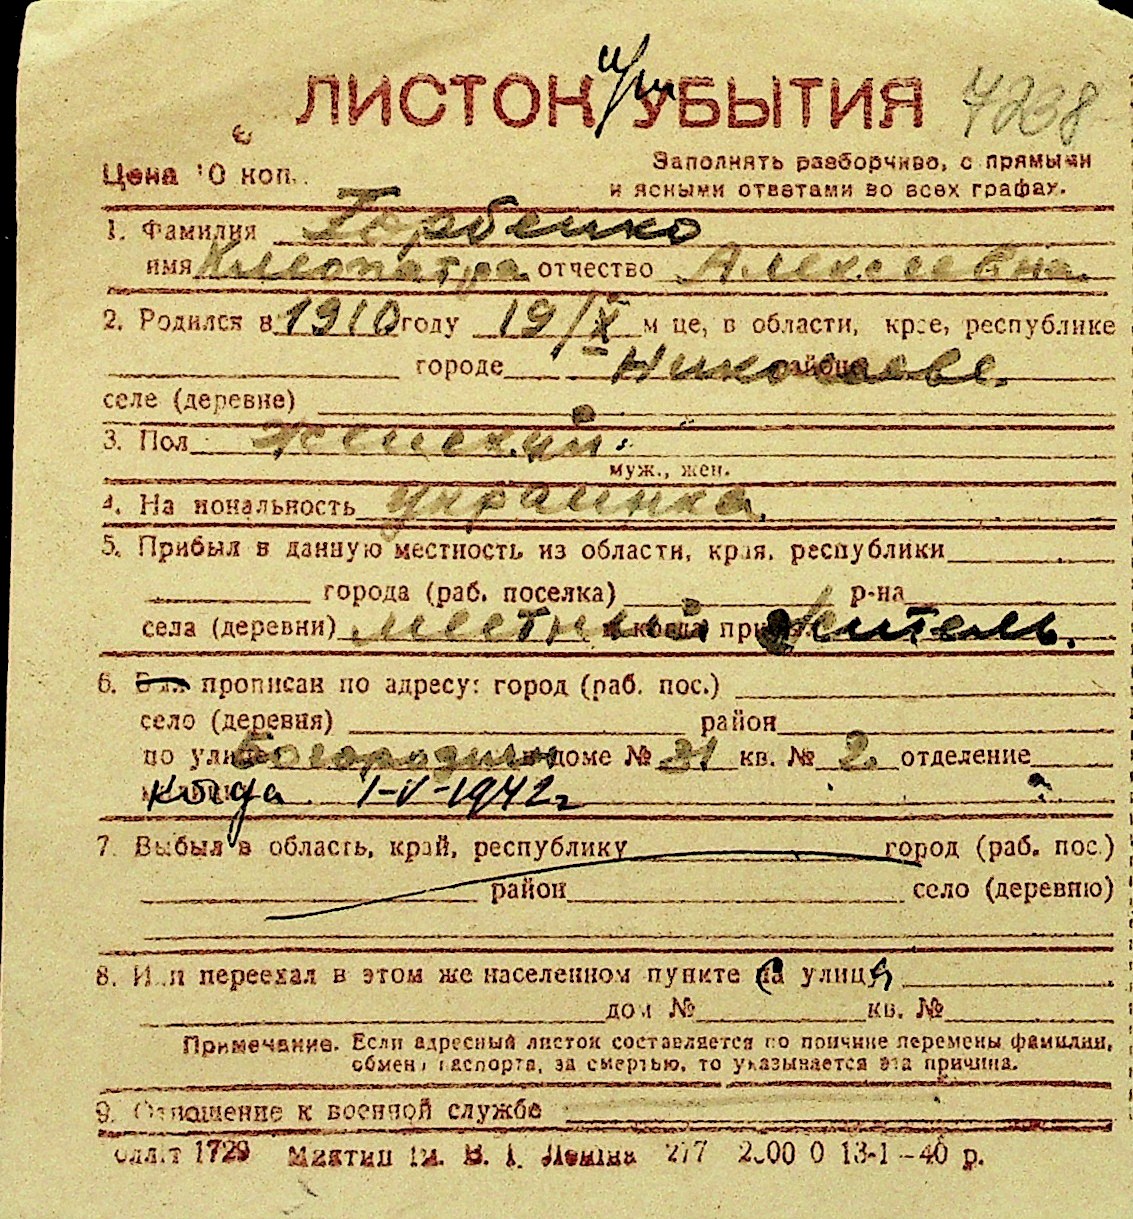 ЛИСТОК при УБЫТИЯ 7238
Цена 10 коп. Заполнять разборчиво, с прямыми
и ясными ответами во всех графах.
1. Фамилия Горбенко
имя Клеопатра отчество Алексеевна
2. Родился в 1910 году 19/X м-це, в области, крае, республике
городе Николаеве района
селе (деревне)
3. Пол женский.
муж., жен.
4. Национальность украинка
5. Прибыл в данную местность из области, края, республики
города (раб. поселка) р-на
села (деревни) местный житель.
6. Был прописан по адресу: город (раб. пос.)
село (деревня) район
по улице доме № 31 кв. № 2. отделение
когда 1-V-1942 г
7. Выбыл в область, край, республику город (раб. пос.)
район село (деревню)
8. Или переехал в этом же населенном пункте с улицы
дом № кв. №
Примечание. Если адресный листок составляется по причине перемены фамилии,
обмена паспорта, за смертью, то указывается эта причина.
9. Отношение к военной службе
1729 им. В. І. Леніна 13-1-40 р.